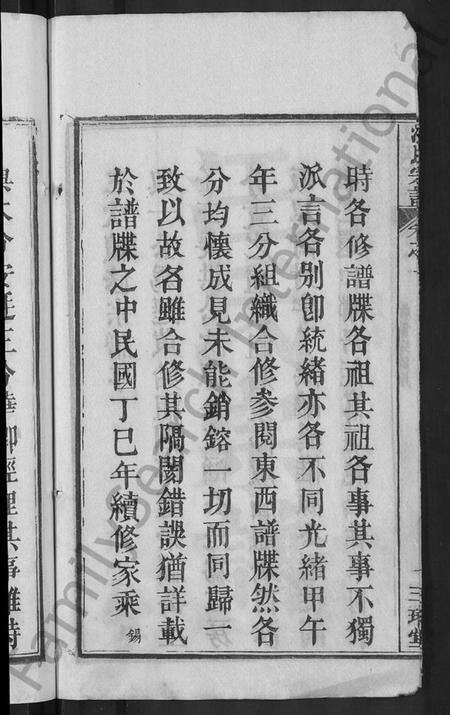 時各修譜牒各祖其祖各事其事不獨
派言各別卽統緒亦各不同光緒甲午
年三分組織合修參閱東西譜牒然各
分均懷成見未能銷鎔一切而同歸一
致以故名雖合修其隔閡錯誤猶詳載
於譜牒之中民國丁巳年續修家乘錫
FamilySearch International